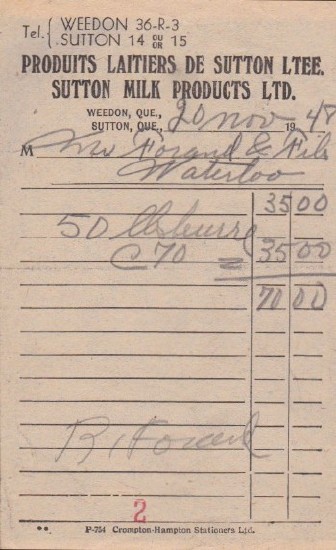 Tel. { WEEDON 36-R-3
SUTTON 14 OU OR 15
PRODUITS LAITIERS DE SUTTON LTEE.
SUTTON MILK PRODUCTS LTD.
WEEDON, QUE.,
SUTTON, QUE., 20 Nov 1948
M Mr Forand & Fils
Waterloo
35 00
50 lbs beurre
C 70 = 35 00
70 00
R. Forand
2
F-754 Crompton-Hampton Stationers Ltd.